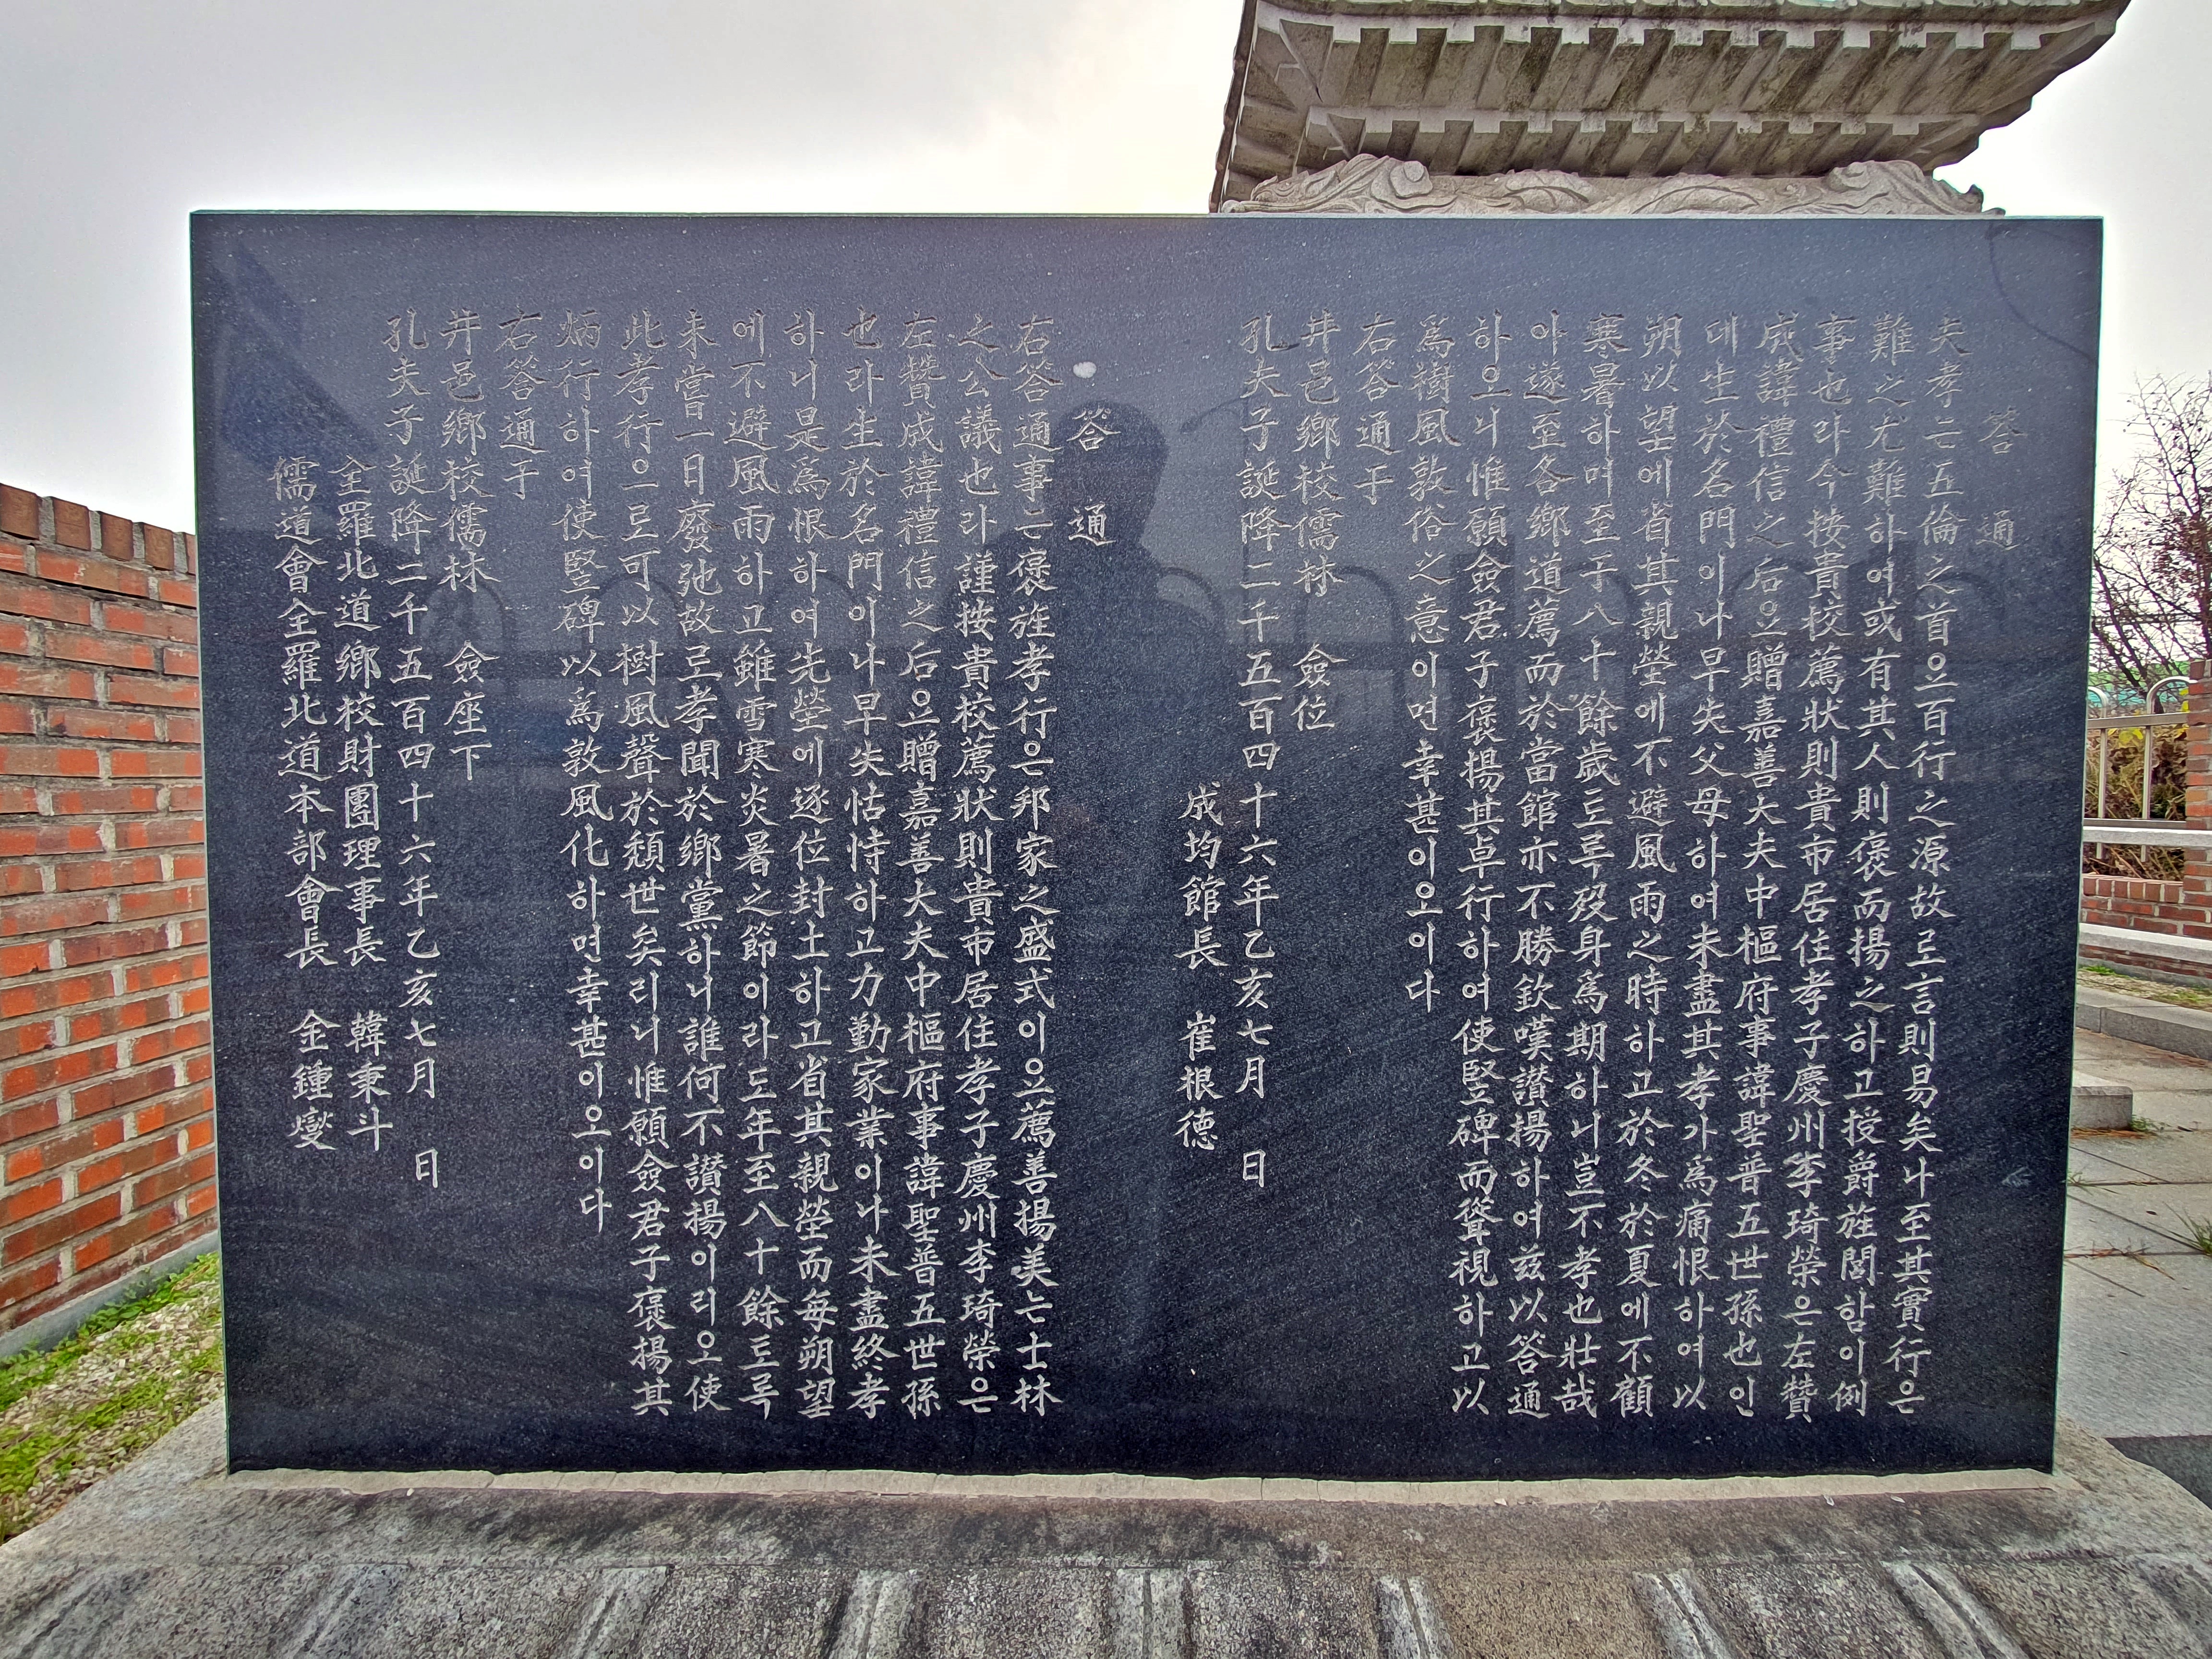 答 通
夫孝는五倫之首으百行之源故로言則易矣나至其實行은
難之尤難하여或有其人則褒而揚之하고授爵旌閭함이例
事也라今按貴校薦狀則貴市居住孝子慶州李琦榮은左贊
成諱禮信之后으贈嘉善大夫中樞府事諱聖普五世孫也인
대生於名門이나早失父母하여未盡其孝가爲痛恨하여以
朔以望에省其親塋에不避風雨之時하고於冬於夏에不顧
寒暑하며至于八十餘歲토록歿身爲期하니豈不孝也壯哉
아遂至各鄕道薦而於當館亦不勝欽嘆讃揚하여玆以答通
하으니惟願僉君子褒揚其卓行하여使竪碑而聳視하고以
爲樹風敦俗之意이면幸甚이오이다
右答通于
井邑鄕校儒林 僉位
孔夫子誕降二千五百四十六年乙亥七月 日
成均館長 崔根德
答 通
右答通事는褒旌孝行은邦家之盛式이으薦善揚美는士林
之公議也라謹按貴校薦狀則貴市居住孝子慶州李琦榮은
左贊成諱禮信之后으贈嘉善大夫中樞府事諱聖普五世孫
也라生於名門이나早失怙恃하고力勤家業이나未盡終孝
하니是爲恨하여先塋에逐位封土하고省其親塋而每朔望
에不避風雨하고雖雪寒炎暑之節이라도年至八十餘토록
未嘗一日廢弛故로孝聞於鄕黨하니誰何不讃揚이리오使
此孝行으로可以樹風聲於頹世矣리니惟願僉君子褒揚其
炳行하여使竪碑以爲敦風化하면幸甚이오이다
右答通于
井邑鄕校儒林 僉座下
孔夫子誕降二千五百四十六年乙亥七月 日
全羅北道鄕校財團理事長 韓秉斗
儒道會全羅北道本部會長 金鍾燮